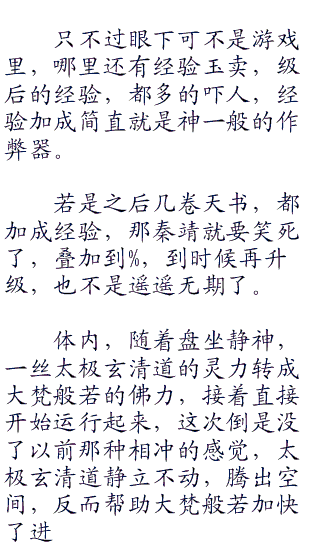 只不过眼下可不是游戏
里，哪里还有经验玉卖，级
后的经验，都多的吓人，经
验加成简直就是神一般的作
弊器。
若是之后几卷天书，都
加成经验，那秦靖就要笑死
了，叠加到%，到时候再升
级，也不是遥遥无期了。
体内，随着盘坐静神，
一丝太极玄清道的灵力转成
大梵般若的佛力，接着直接
开始运行起来，这次倒是没
了以前那种相冲的感觉，太
极玄清道静立不动，腾出空
间，反而帮助大梵般若加快
了进